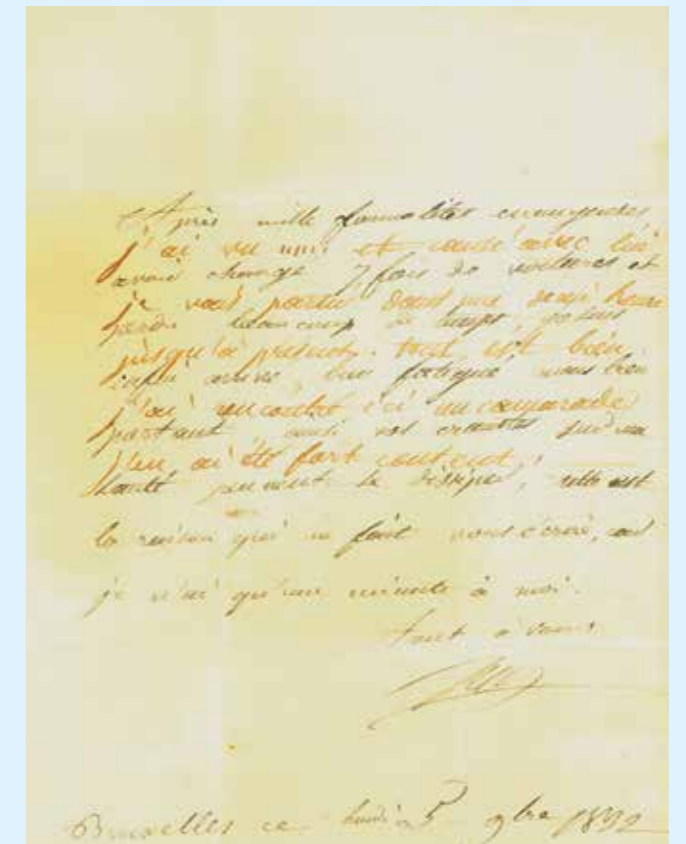 Après mille formalités ennuyeuses
j'ai vu et causé avec lui
avoir changé 7 fois de voitures et
je vais partir dans une demi heure
perdu beaucoup de temps,
jusqu'à présent. tout est bien
enfin arrivé, bien fatigué mais bien
j'ai rencontré ici un camarade
partant ainsi vos craintes sur ma
j'en ai été fort content,
santé peuvent se dissiper, telle est
la raison qui me fait vous écrire, car
je n'ai qu'une minute à moi.
tout à vous
Bruxelles ce lundi 5 9bre 1832